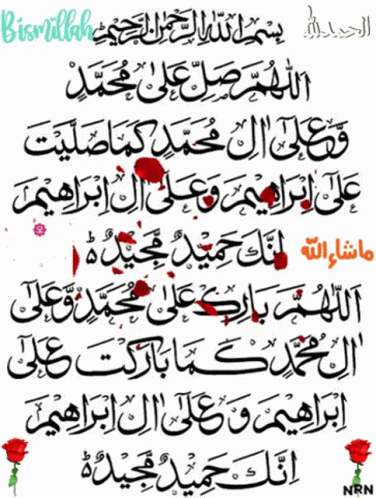 Bismillah بِسْمِ اللهِ الرَّحْمٰنِ الرَّحِيْمِ الحمدلله
اَللّٰهُمَّ صَلِّ عَلٰى مُحَمَّدٍ
وَّعَلٰٓى اٰلِ مُحَمَّدٍ كَمَا صَلَّيْتَ
عَلٰٓى اِبْرَاهِيْمَ وَعَلٰٓى اٰلِ اِبْرَاهِيْمَ
اِنَّكَ حَمِيْدٌ مَّجِيْدٌ ماشاءالله
اَللّٰهُمَّ بَارِكْ عَلٰى مُحَمَّدٍ وَّعَلٰٓى
اٰلِ مُحَمَّدٍ كَمَا بَارَكْتَ عَلٰٓى
اِبْرَاهِيْمَ وَعَلٰٓى اٰلِ اِبْرَاهِيْمَ
اِنَّكَ حَمِيْدٌ مَّجِيْدٌ
NRN